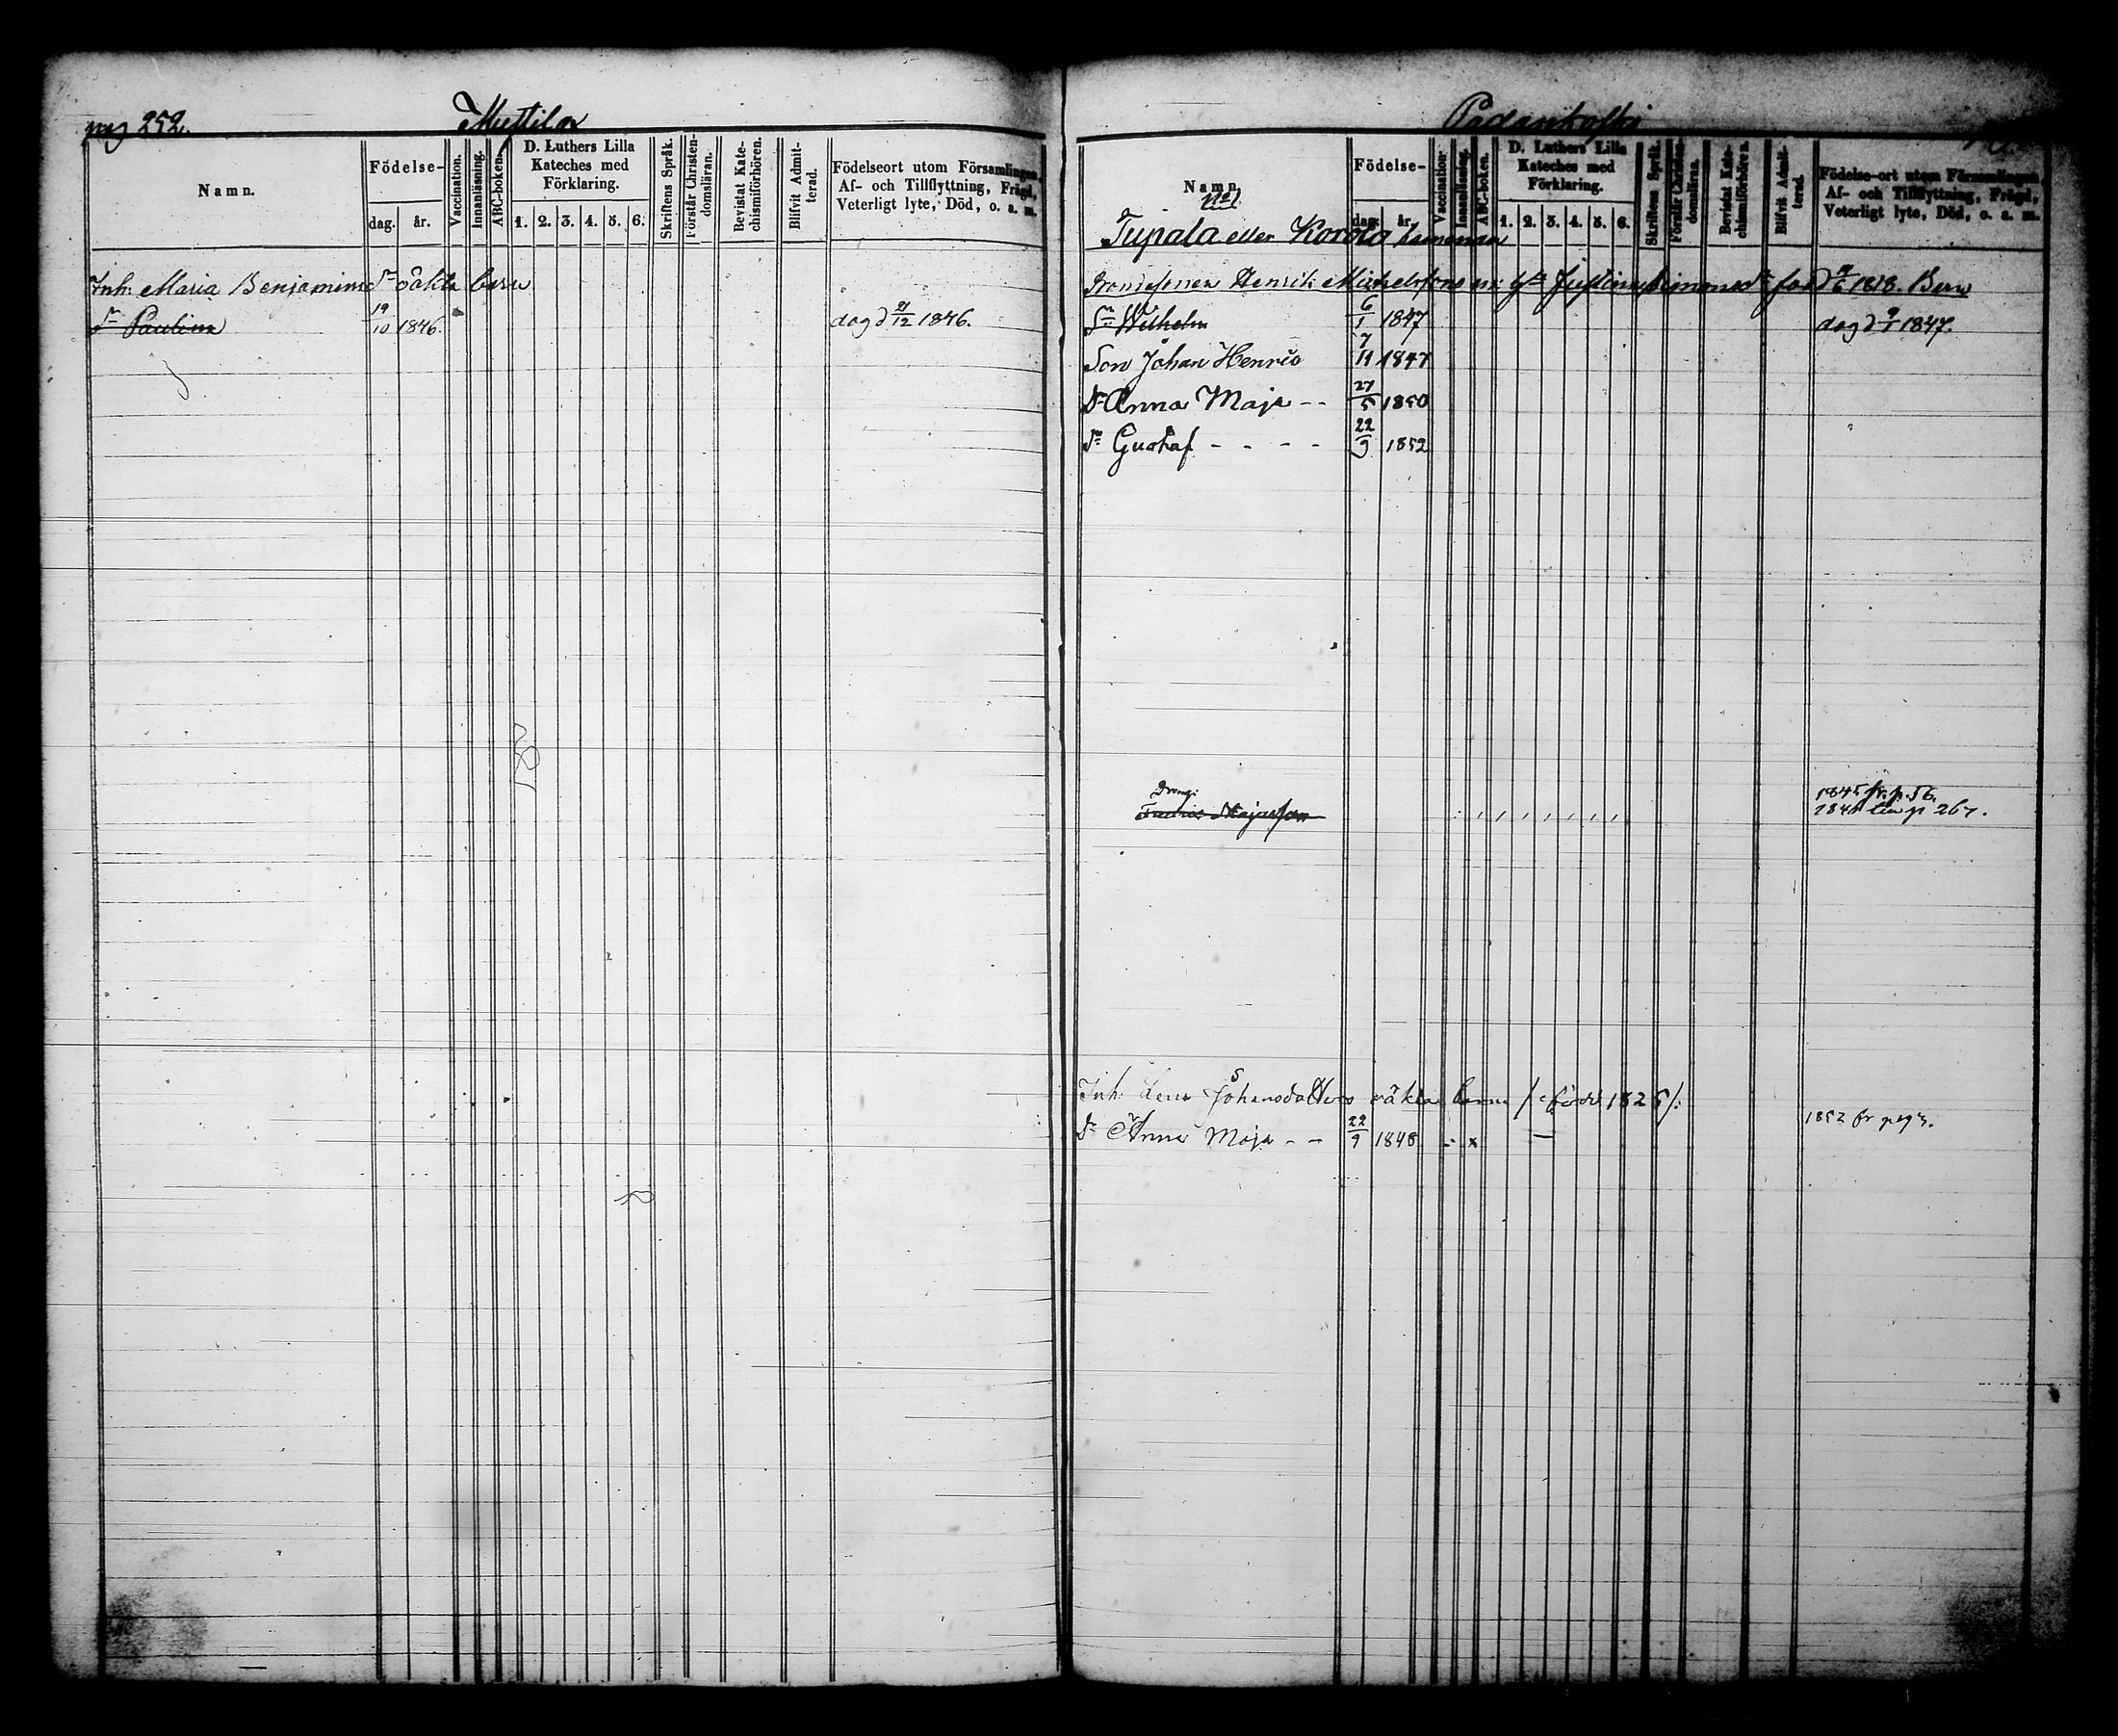 pag 252.
Mustila
Namn.
Födelse-
dag.
år.
Vaccination.
Innanläsning.
ABC-boken.
D. Luthers Lilla
Kateches med
Förklaring.
1. 2. 3. 4. 5. 6.
Skriftens Språk.
Förstår Christen-
domsläran.
Bevistat Kate-
chismiförhören.
Blifvit Admit-
terad.
Födelseort utom Församlingen,
Af- och Tillflyttning, Frägd,
Veterligt lyte, Död, o. a. m.
Inh. Maria Benjaminsdr oäkta barn
Dr Paulina 19/10 1846. dog d 21/12 1846.
Padankoski
Namn.
Födelse-
dag.
år.
Vaccination.
Innanläsning.
ABC-boken.
D. Luthers Lilla
Kateches med
Förklaring.
1. 2. 3. 4. 5. 6.
Skriftens Språk.
Förstår Christen-
domsläran.
Bevistat Kate-
chismiförhören.
Blifvit Admit-
terad.
Födelse-ort utom Församlingen,
Af- och Tillflyttning, Frägd,
Veterligt lyte, Död, o. a. m.
No 1
Tupala eller Korola hemman
Bondesonen Henrik Michelssons m. hu Justina Simonsdr född 1818. Barn
Sn Wilhelm 6/1 1847 dog d 9/1 1847.
Son Johan Henric 7/11 1847
Dr Anna Maja - - 27/5 1850
Sn Gustaf - - - - 22/9 1852
Dreng:
1845 fr. p. 56.
till p 267.
Inh. Lena Johansdotters oäkta barn /: född 1826 /:
Dr Anna Maja - - 22/9 1848 x — 1852 fr pag